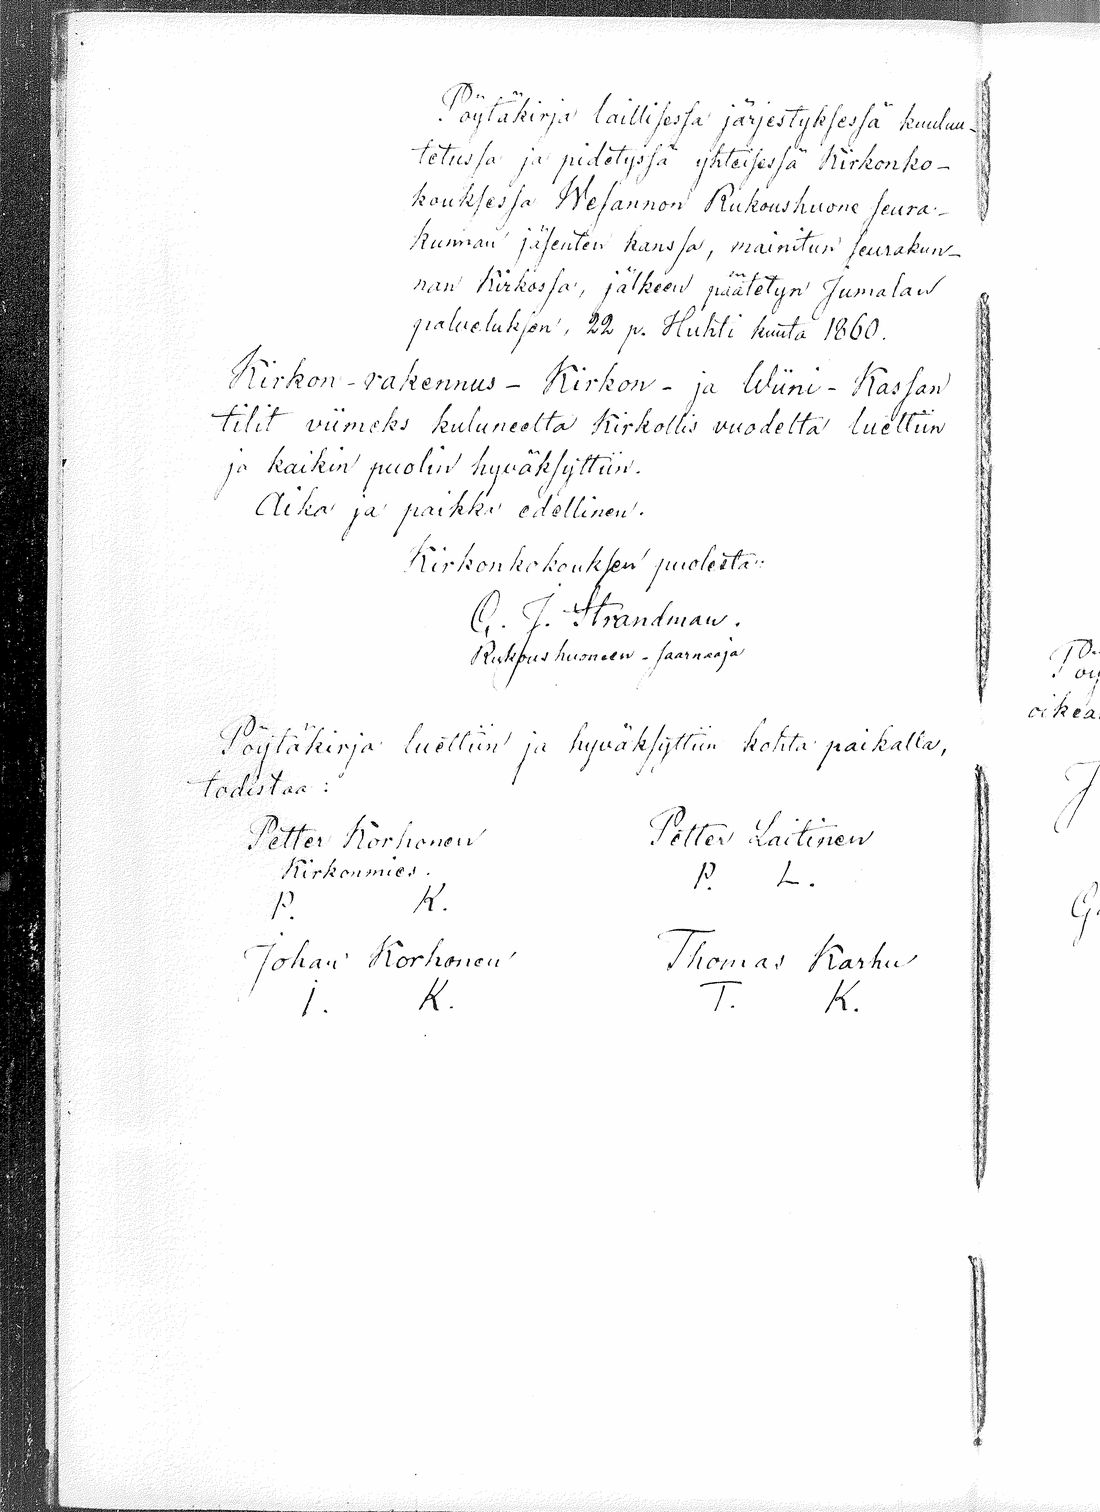 Pöytäkirja laillisessa järjestyksessä kuuluu-
tetussa ja pidetyssä yhteisessä Kirkonko-
kouksessa Wesannon Rukoushuone seura-
kunnan jäsenten kanssa, mainitun seurakun-
nan Kirkossa, jälkeen päätetyn Jumalan
palveluksen, 22 p. Huhti kuuta 1860.
Kirkon-rakennus- Kirkon- ja Wiini-Kassan
tilit viimeks kuluneelta Kirkollis vuodelta luettiin
ja kaikin puolin hyväksyttiin.
Aika ja paikka edellinen.
Kirkonkokouksen puolesta:
G. J. Strandman.
Rukoushuoneen-saarnaaja
Pöytäkirja luettiin ja hyväksyttiin kohta paikalla,
todistaa:
Petter Korhonen Petter Laitinen
Kirkonmies.
P. K. P. L.
Johan Korhonen Thomas Karhu
I. K. T. K.
Pöy
oikea
J
G.